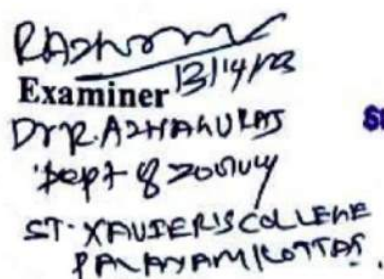 Examiner 13/14/23
Dr R. AZHAGURAJ
Dept of Zoology
ST. XAVIER'S COLLEGE
PALAYAMKOTTAI.